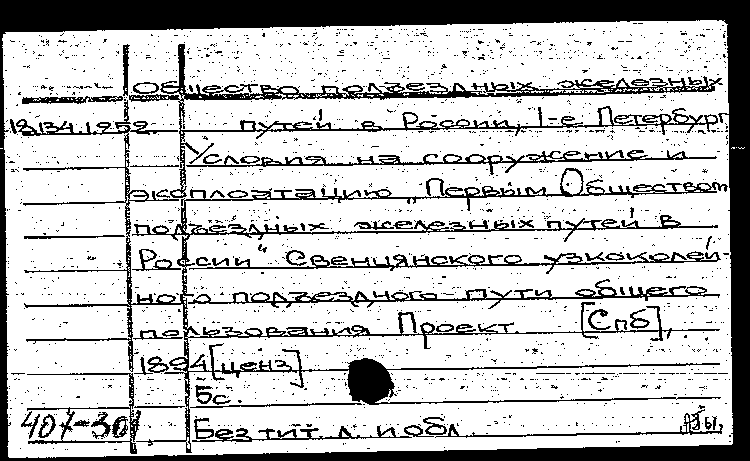 Общество подъездных железных
18.134.1.252. путей в России, 1-е Петербург
Условия на сооружение и
эксплоатацию „Первым Обществом
подъездных железных путей в
России“ Свенцянского узкоколей-
ного подъездного пути общего
пользования Проект. [Спб],
1894 [ценз]
5с.
407-30
Без тит. л. и обл.